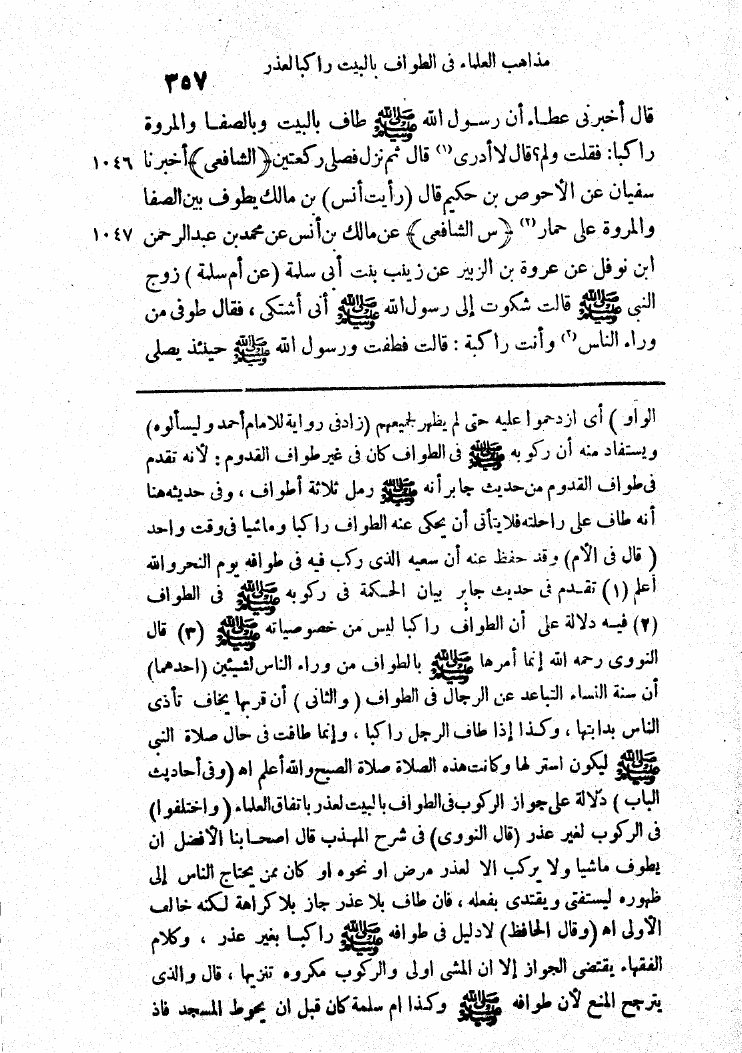 مذاهب العلماء فى الطواف بالبيت راكبا لعذر
٣٥٧
قال أخبرنى عطاء أن رسول الله ﷺ طاف بالبيت وبالصفا والمروة
راكبا: فقلت ولم؟ قال لا أدرى (١) قال ثم نزل فصلى ركعتين ﴿الشافعى﴾ أخبرنا ١٠٤٦
سفيان عن الأحوص بن حكيم قال (رأيت أنس) بن مالك يطوف بين الصفا
والمروة على حمار (٢) ﴿س الشافعى﴾ عن مالك بن أنس عن محمد بن عبد الرحمن ١٠٤٧
ابن نوفل عن عروة بن الزبير عن زينب بنت أبى سلمة (عن أم سلمة) زوج
النبى ﷺ قالت شكوت إلى رسول الله ﷺ أنى أشتكى ، فقال طوفى من
وراء الناس (٣) وأنت راكبة : قالت فطفت ورسول الله ﷺ حينئذ يصلى
الواو) أى ازدحموا عليه حتى لم يظهر لجميعهم (زاد فى رواية للامام أحمد وليسألوه)
ويستفاد منه أن ركوبه ﷺ فى الطواف كان فى غير طواف القدوم : لأنه تقدم
فى طواف القدوم من حديث جابر أنه ﷺ رمل ثلاثة أطواف ، وفى حديثه هنا
أنه طاف على راحلته فلا يتأتى أن يحكى عنه الطواف راكبا وماشيا فى وقت واحد
(قال فى الأم) وقد حفظ عنه أن سعيه الذى ركب فيه فى طوافه يوم النحر والله
أعلم (١) تقدم فى حديث جابر بيان الحكمة فى ركوبه ﷺ فى الطواف
(٢) فيه دلالة على أن الطواف راكبا ليس من خصوصياته ﷺ (٣) قال
النووى رحمه الله إنما أمرها ﷺ بالطواف من وراء الناس لشيئين (احدهما)
أن سنة النساء التباعد عن الرجال فى الطواف (والثانى) أن قربها يخاف تأذى
الناس بدابتها ، وكذا إذا طاف الرجل راكبا ، وإنما طافت فى حال صلاة النبى
ﷺ ليكون استر لها وكانت هذه الصلاة صلاة الصبح والله أعلم اه (وفى أحاديث
الباب) دلالة على جواز الركوب فى الطواف بالبيت لعذر باتفاق العلماء (واختلفوا)
فى الركوب لغير عذر (قال النووى) فى شرح المهذب قال اصحابنا الأفضل ان
يطوف ماشيا ولا يركب الا لعذر مرض او نحوه او كان ممن يحتاج الناس إلى
ظهوره ليستفتى ويقتدى بفعله ، فان طاف بلا عذر جاز بلا كراهة لكنه خالف
الأولى اه (وقال الحافظ) لا دليل فى طوافه ﷺ راكبا بغير عذر ، وكلام
الفقهاء يقتضى الجواز إلا ان المشى اولى والركوب مكروه تنزيها ، قال والذى
يترجح المنع لأن طوافه ﷺ وكذا ام سلمة كان قبل ان يحوط المسجد فاذ